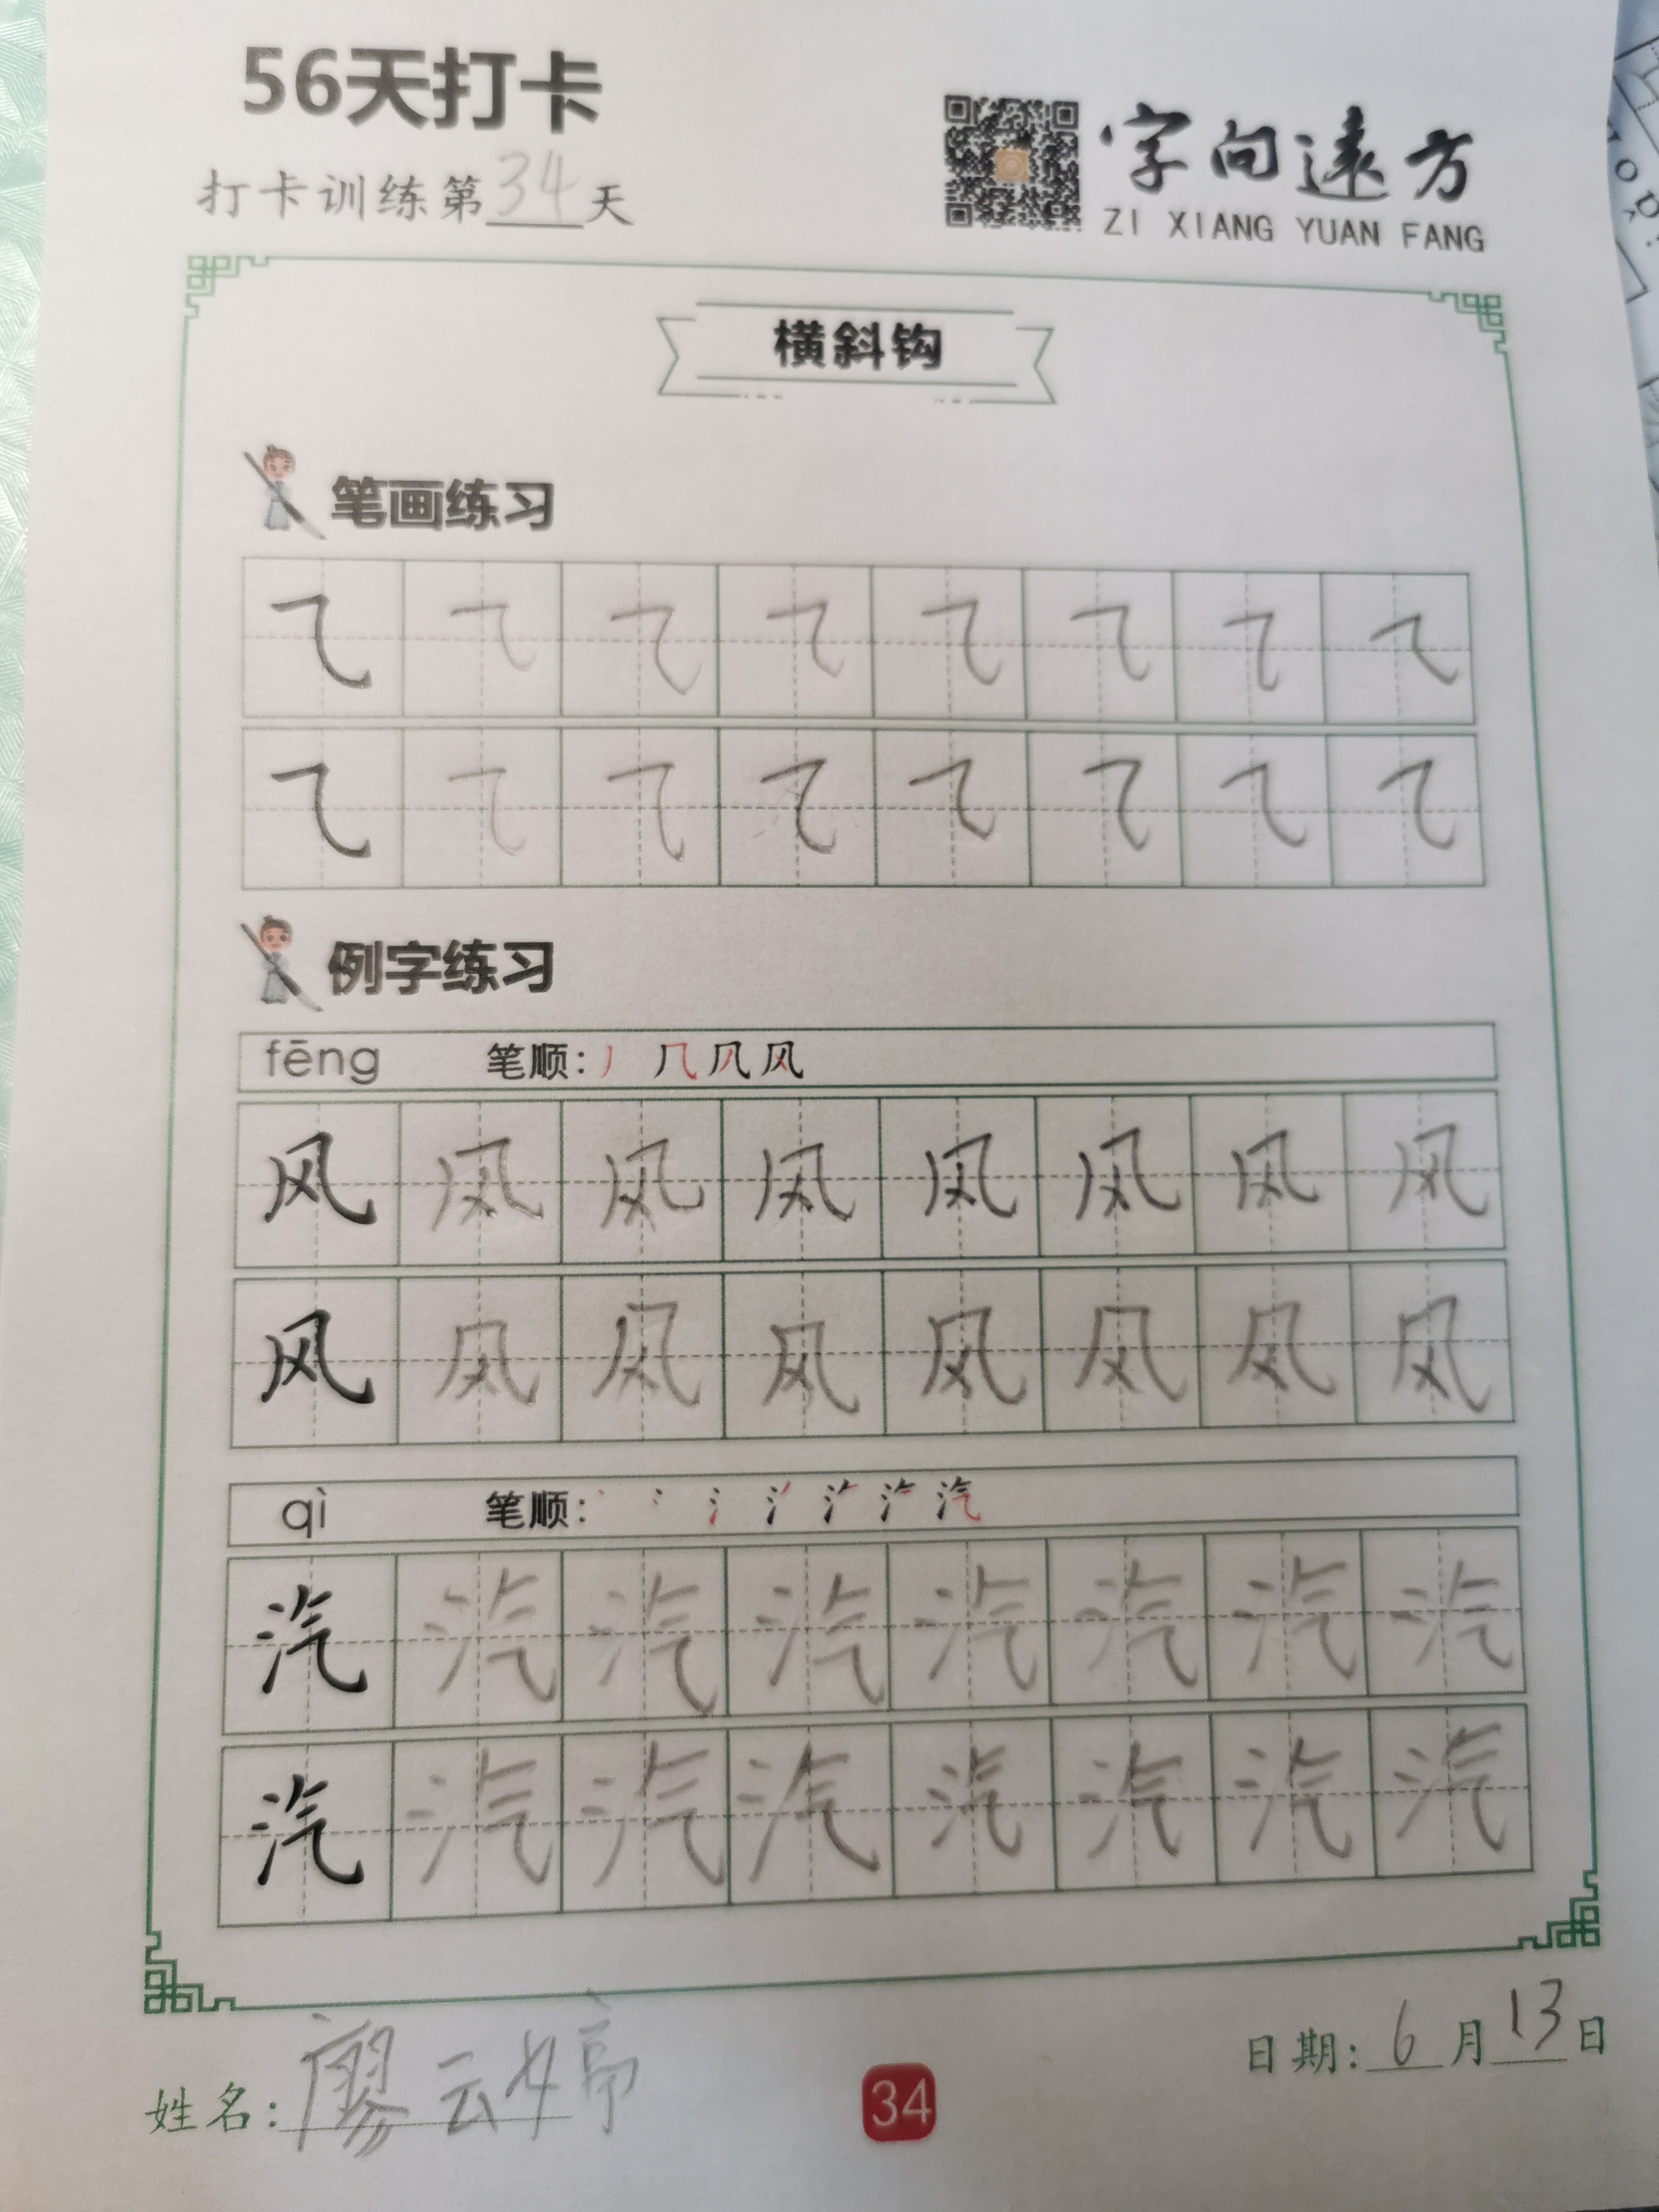 56天打卡
打卡训练第34天
字向遠方
ZI XIANG YUAN FANG
横斜钩
笔画练习
㇈ ㇈ ㇈ ㇈ ㇈ ㇈ ㇈ ㇈
㇈ ㇈ ㇈ ㇈ ㇈ ㇈ ㇈ ㇈
例字练习
fēng 笔顺: 丿 几 风
风 风 风 风 风 风 风 风
风 风 风 风 风 风 风 风
qì 笔顺: 丶 冫 氵 汽
汽 汽 汽 汽 汽 汽 汽 汽
汽 汽 汽 汽 汽 汽 汽 汽
姓名:廖云婷
34
日期:6月13日